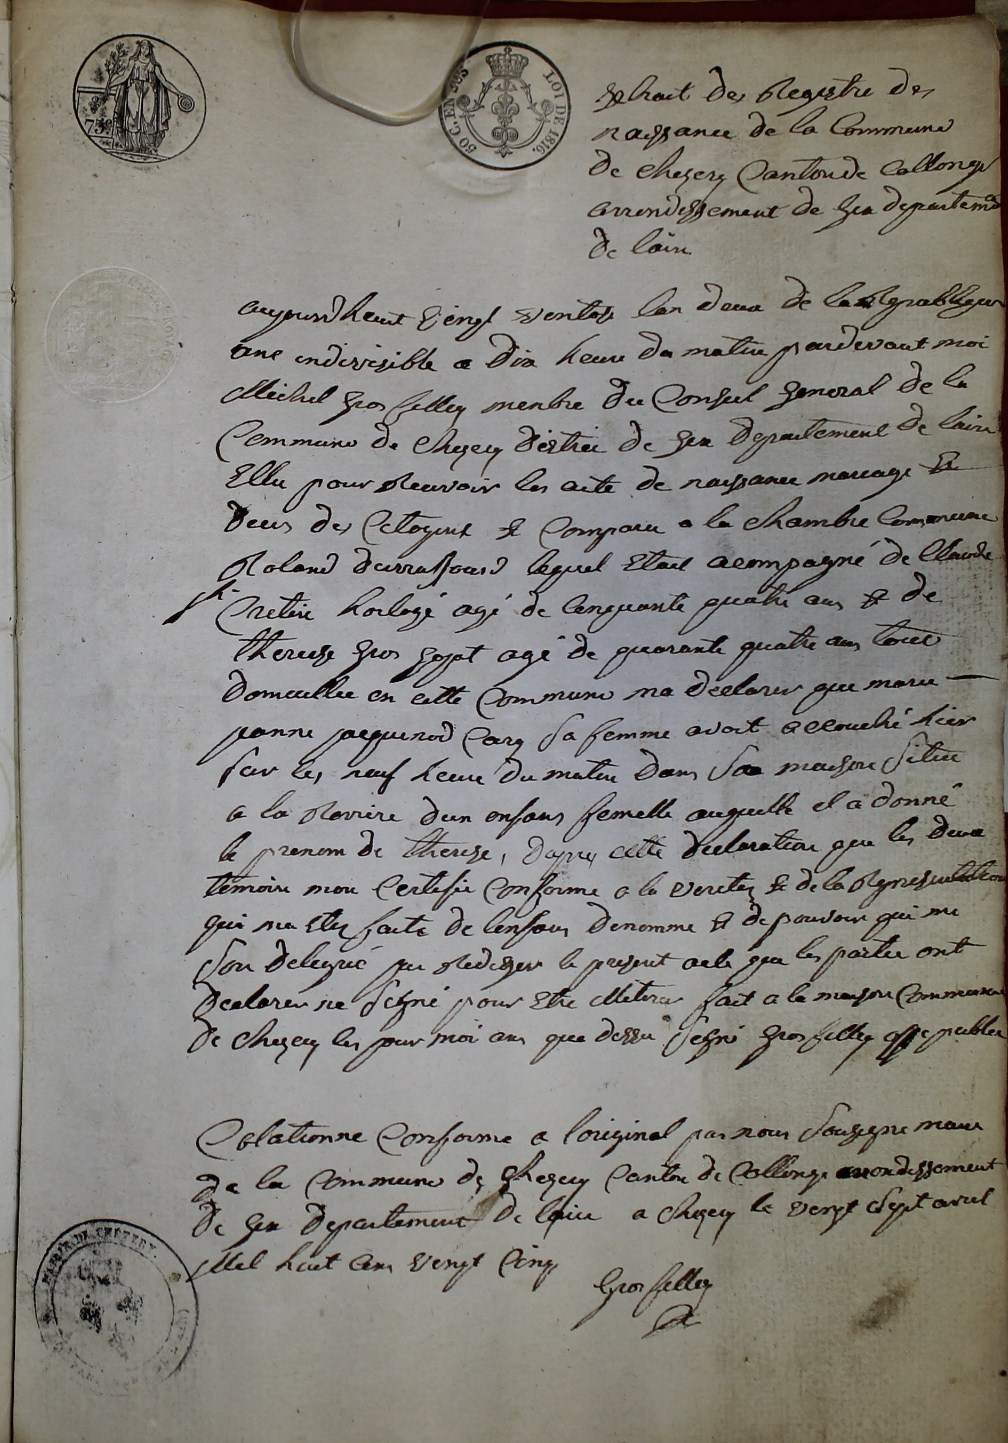 75c
50 C. EN SUS
LOI DE 1816.
Extrait des Registre des
naissance de la Commune
de Chezery Canton de Collonge
arrondissement de Gex departemt
de lain
aujourdheuit vengt ventose lan deux de la Republique
une indivisible a dix heure du matin pardevant moi
Michel Gros filley menbre du Conseil General de la
Commune de Chezery district de Gex departement de lain
Ellu pour Recevoir les acte de naissance mariage et
deces des Citoyens et comparu a la Chambre Commune
Roland Durraffourd lequel Etait acompagné de Claude
Cretin horlogé agé de cinquante quatre ans et de
therese Gros agé de quarante quatre ans tous
domicillie en cette Commune ma declarer que marie
janne jacquinod Carg sa femme avoit accouché hier
sur les neuf heure du matin dans sa maison situe
a la Riviere dun enfans femelle auquelle il a donné
le prenom de therese, dapres cette declaration que les deux
temoins mon Certifie Conforme a la veritez et de la Representation
qui ma Etez faite de lenfans denomme et de pouvoir qui me
son delegué jai Rediger le present acte que les partie ont
declarer ne signé pour Etre illiterer fait a la maison Commune
de Chezery les jour moi ans que dessu signé Gros filley off publer
Colationne Conforme a loriginal par nous sousigne maire
de la Commune de Chezery Canton de Collonge arrondissement
de Gex departement de lain a Chezery le vengt sept avril
Mil huit cens vengt cinq
Gros filley
MAIRIE DE CHEZERY